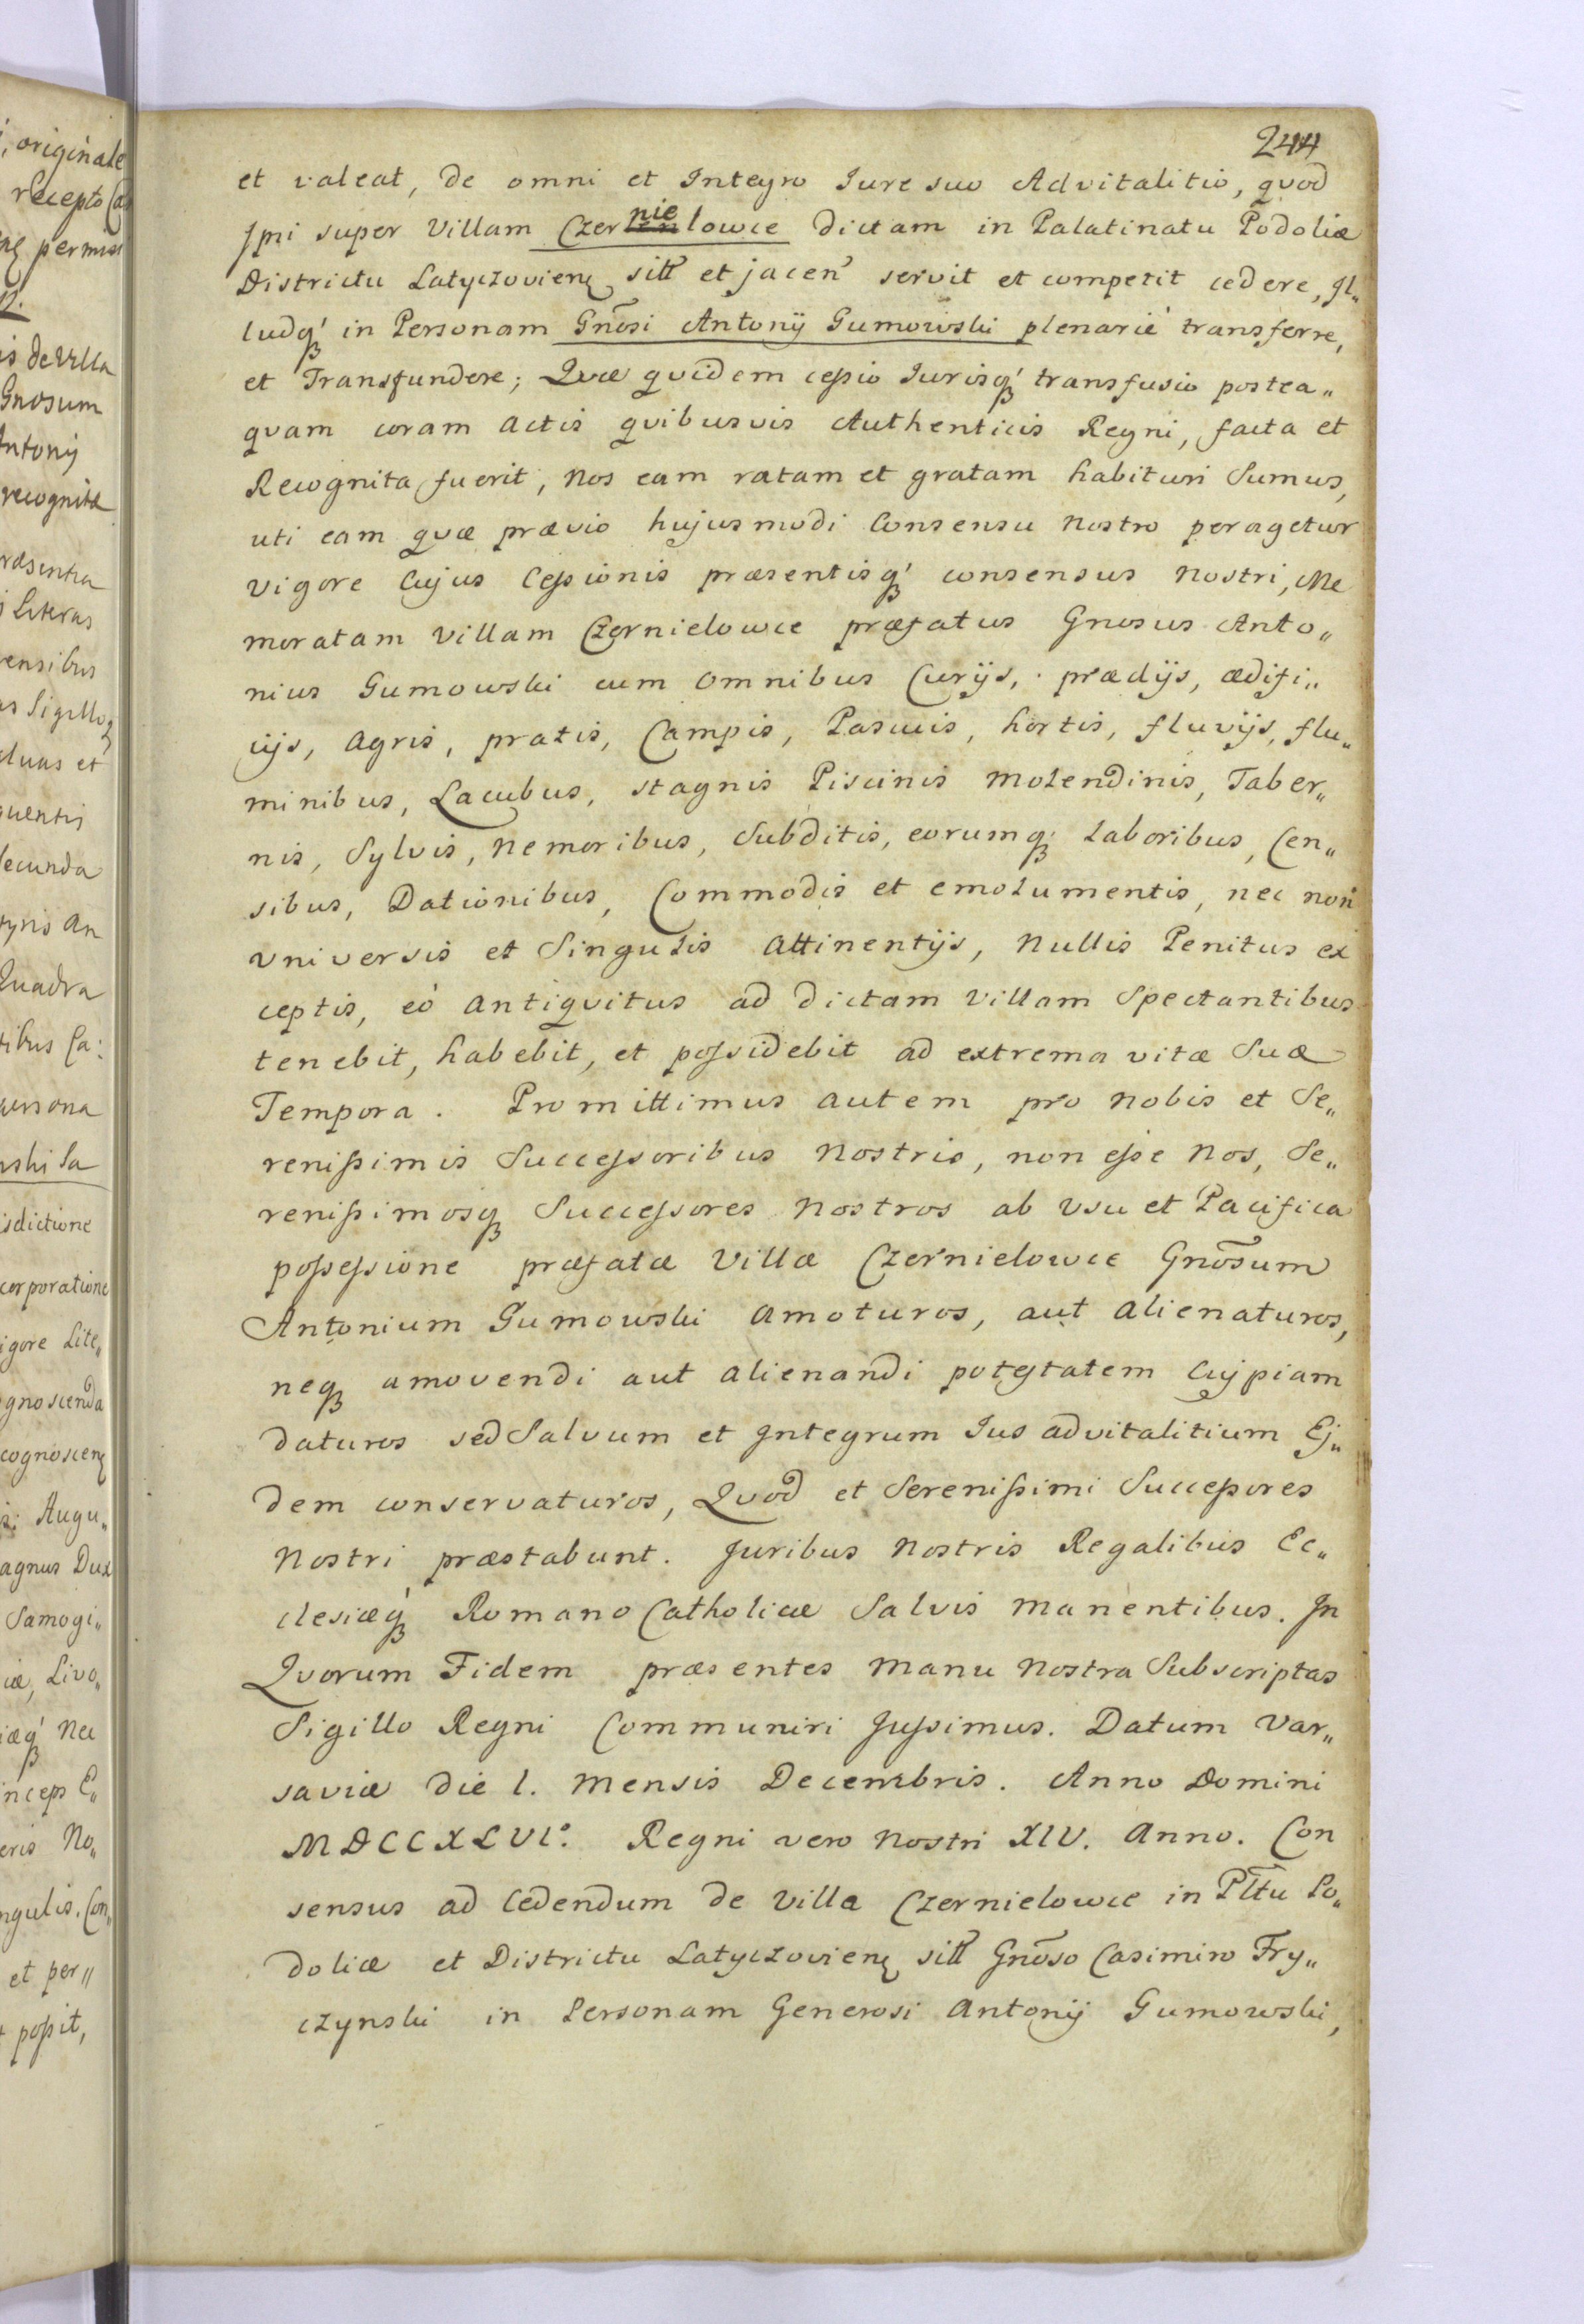 244
et valeat, de omni et Integro Jure suo Advitalitio, qvod
Jpsi super Villam Czernielowce dictam in Palatinatu Podoliæ
Districtu Latyczovien sitt et jacen servit et competit cedere, Jl„
ludq in Personam Gnosi Antonij Gumowski plenarié transferre,
et Transfundere; Qvæ qvidem cessio Jurisq transfusio postea„
qvam coram Actis qvibusvis Authenticis Regni, facta et
Recognita fuerit, Nos eam ratam et gratam habituri Sumus,
uti eam qvæ prævio hujusmodi Consensu Nostro peragetur
Vigore Cujus Cessionis præsentisq consensus Nostri, Me
moratam Villam Czernielowce præfatus Gnosus Anto„
nius Gumowski cum Omnibus Curijs, prædijs, ædifi„
cijs, Agris, pratis, Campis, Pascuis, hortis, fluvijs, flu„
minibus, Lacubus, stagnis Piscinis Molendinis, Taber„
nis, Sylvis, Nemoribus, Subditis, eorumq Laboribus, Cen„
sibus, Dationibus, Commodis et emolumentis, nec non
Vniversis et Singulis Attinentijs, Nullis Penitus ex
ceptis, eó Antiqvitus ad dictam Villam Spectantibus
tenebit, habebit, et possidebit ad extrema vitæ Suæ
Tempora. Promittimus autem pro Nobis et Se„
renissimis Successoribus Nostris, non esse Nos, Se„
renissimosq Successores Nostros ab Vsu et Pacifica
possessione præfatæ Villæ Czernielowce Gnosum
Antonium Gumowski Amoturos, aut Alienaturos,
neq amovendi aut alienandi potestatem Cujpiam
daturos sed Salvum et Integrum Jus advitalitium Ej„
dem conservaturos, Qvod et Serenissimi Successores
Nostri præstabunt. Juribus Nostris Regalibus Ec„
clesiæq Romano Catholicæ Salvis Manentibus. Jn
Qvorum Fidem præsentes Manu Nostra Subscriptas
Sigillo Regni Communiri Jussimus. Datum Var„
saviæ die 1. Mensis Decembris. Anno Domini
MDCCXLVI°. Regni vero Nostri XIV. Anno. Con
sensus ad Cedendum de Villa Czernielowce in Pltu Po„
doliæ et Districtu Latyczovien sitt Gnoso Casimiro Fry„
czynski in Personam Generosi Antonij Gumowski,